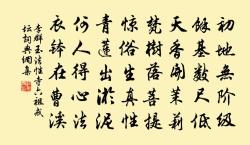 初地無階級
餘基數尺低
天香開茉莉
梵樹落菩提
惊俗生真性
青蓮出淤泥
何人得心法
衣鉢在曹溪
李群玉法性寺六祖戒
坛詞典網集